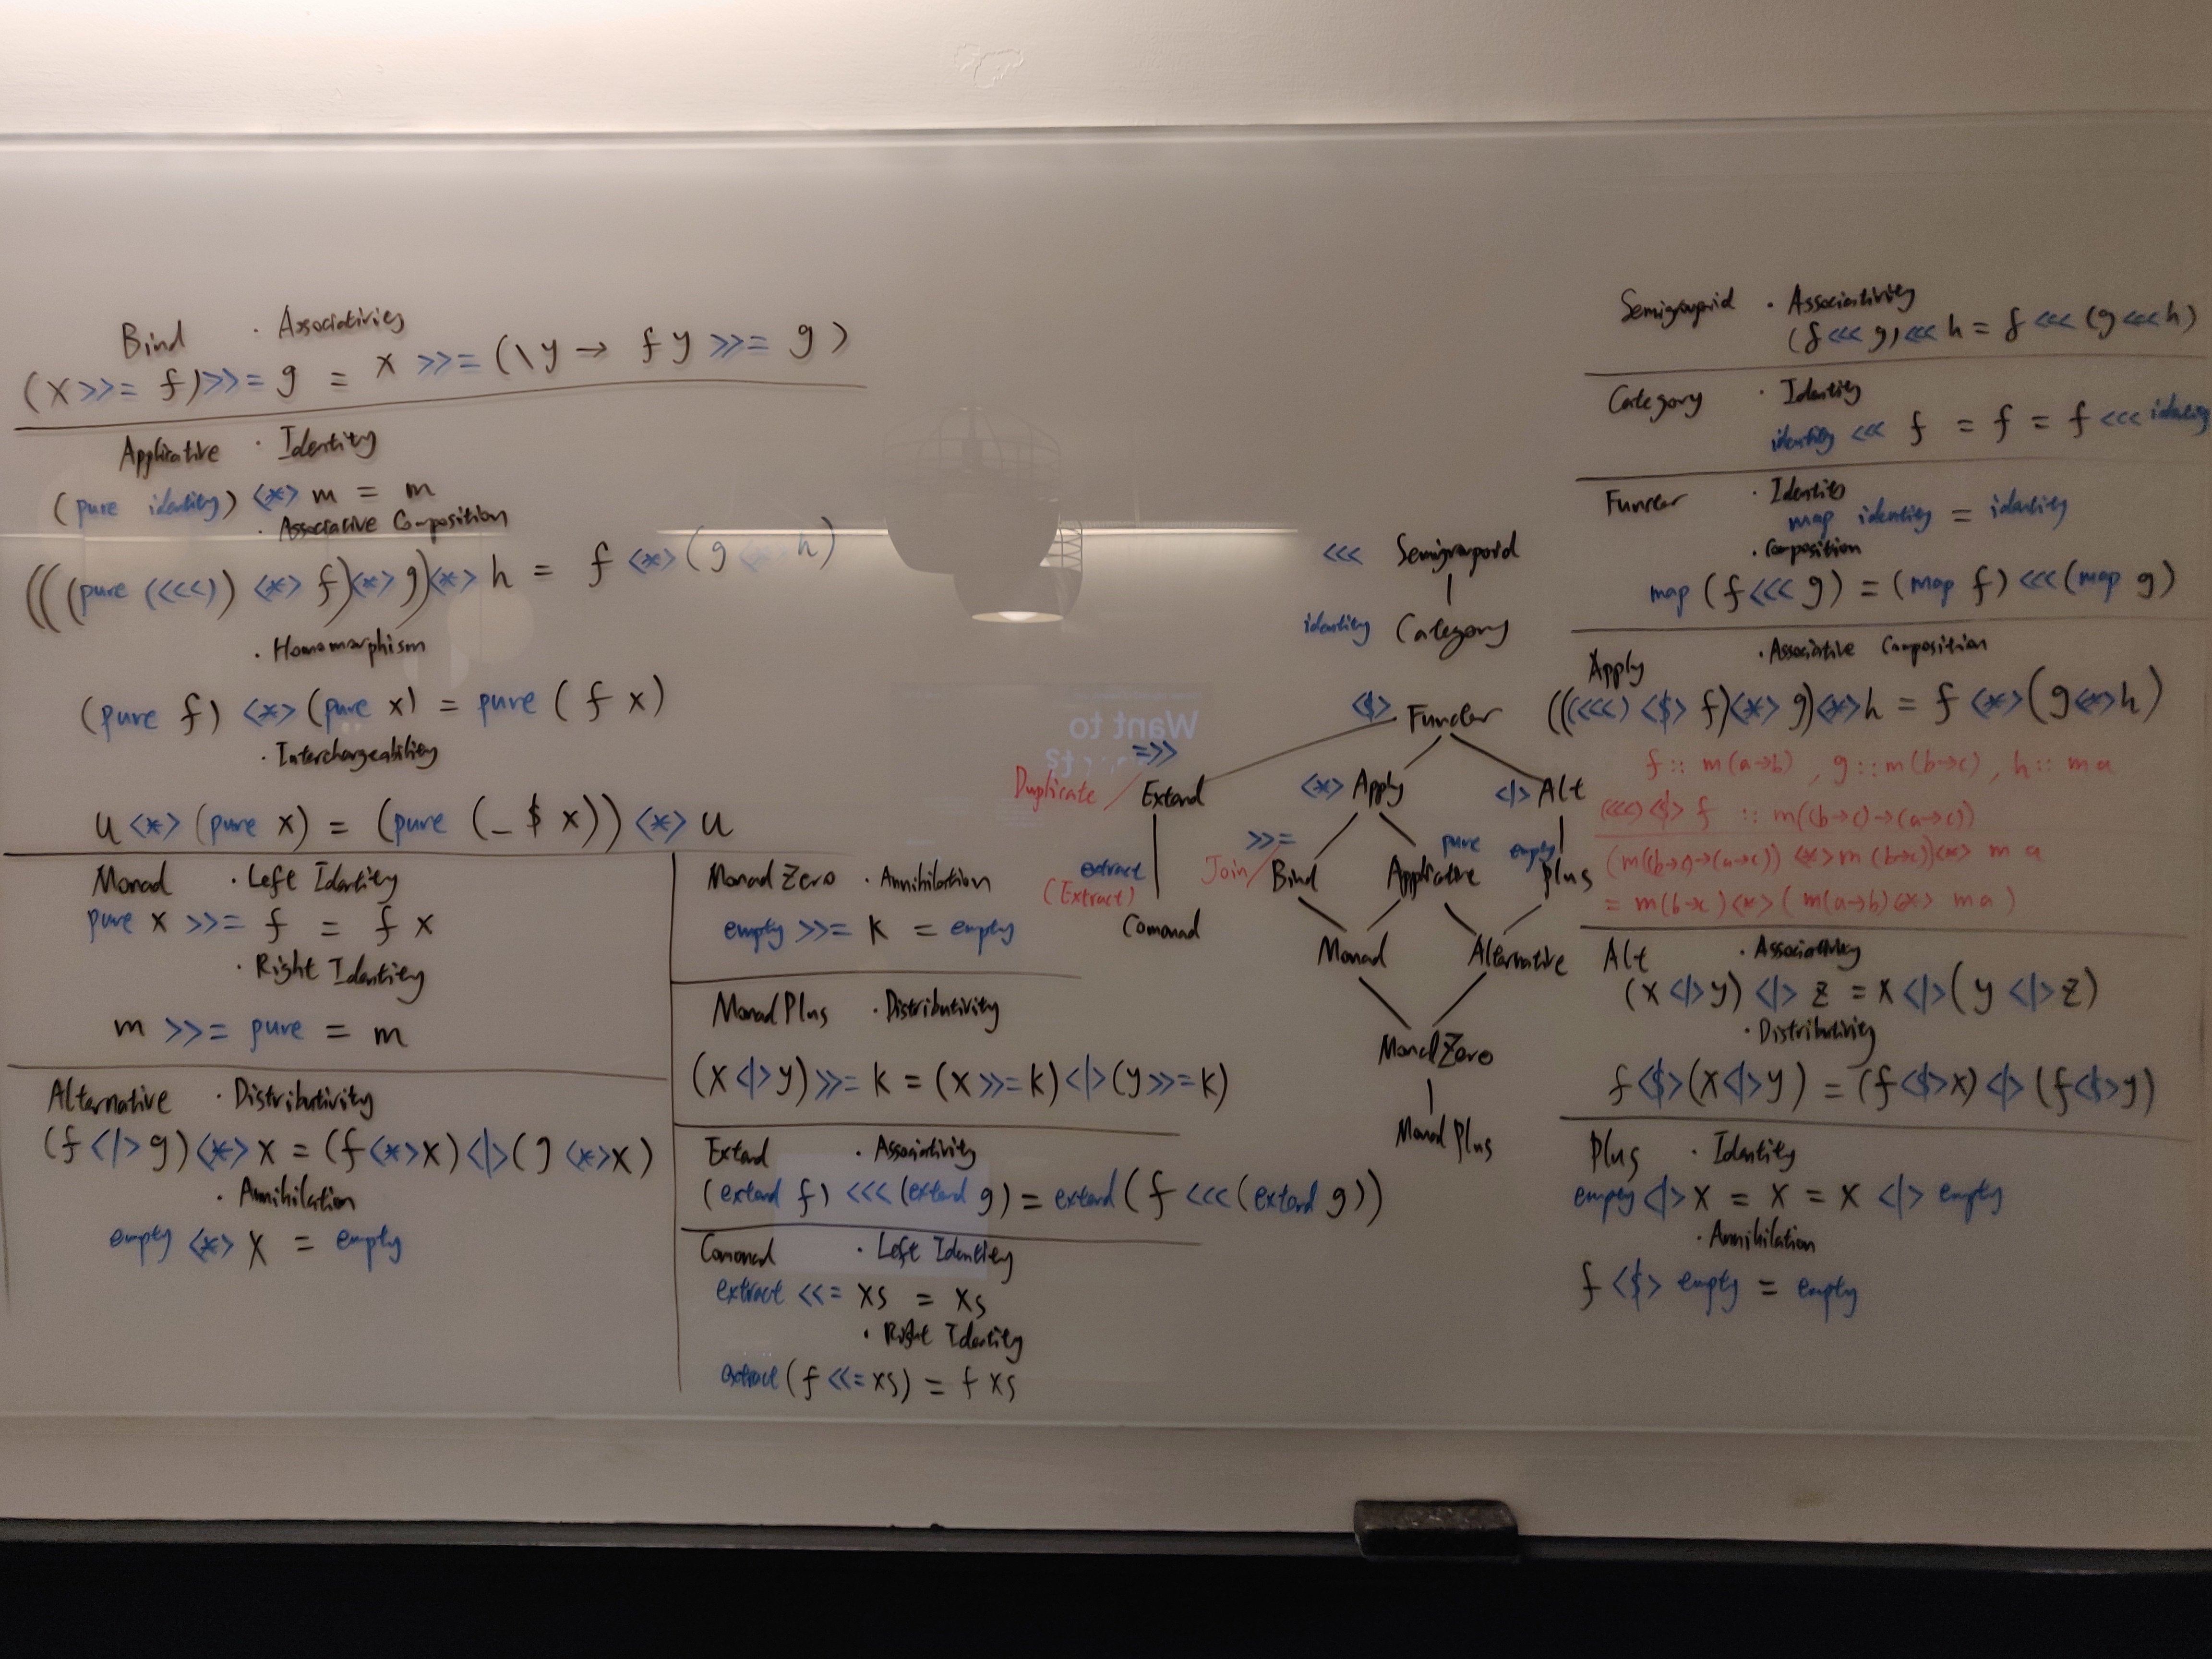 Bind · Associativity
(x >>= f) >>= g = x >>= (\y → f y >>= g)
Applicative · Identity
(pure identity) <*> m = m
· Associative Composition
(((pure (<<<)) <*> f) <*> g) <*> h = f <*> (g <*> h)
· Homomorphism
(pure f) <*> (pure x) = pure (f x)
· Interchangeability
u <*> (pure x) = (pure (_ $ x)) <*> u
Monad · Left Identity
pure x >>= f = f x
· Right Identity
m >>= pure = m
Alternative · Distributivity
(f <|> g) <*> x = (f <*> x) <|> (g <*> x)
· Annihilation
empty <*> x = empty
MonadZero · Annihilation
empty >>= k = empty
MonadPlus · Distributivity
(x <|> y) >>= k = (x >>= k) <|> (y >>= k)
Extend · Associativity
(extend f) <<< (extend g) = extend (f <<< (extend g))
Comonad · Left Identity
extract <<= xs = xs
· Right Identity
extract (f <<= xs) = f xs
<<< Semigroupoid
identity Category
<$> Functor
Want to
=>>
Duplicate / Extend
<*> Apply
<|> Alt
extract
(Extract)
Comonad
>>=
Join / Bind
pure
Applicative
empty
Plus
Monad
Alternative
MonadZero
MonadPlus
Semigroupoid · Associativity
(f <<< g) <<< h = f <<< (g <<< h)
Category · Identity
identity <<< f = f = f <<< identity
Functor · Identity
map identity = identity
· Composition
map (f <<< g) = (map f) <<< (map g)
Apply · Associative Composition
(((<<<) <$> f) <*> g) <*> h = f <*> (g <*> h)
f :: m(a→b), g :: m(b→c), h :: m a
(<<<) <$> f :: m((b→c)→(a→c))
(m((b→c)→(a→c)) <*> m(b→c)) <*> m a
= m(b→c) <*> (m(a→b) <*> m a)
Alt · Associativity
(x <|> y) <|> z = x <|> (y <|> z)
· Distributivity
f <$> (x <|> y) = (f <$> x) <|> (f <$> y)
Plus · Identity
empty <|> x = x = x <|> empty
· Annihilation
f <$> empty = empty